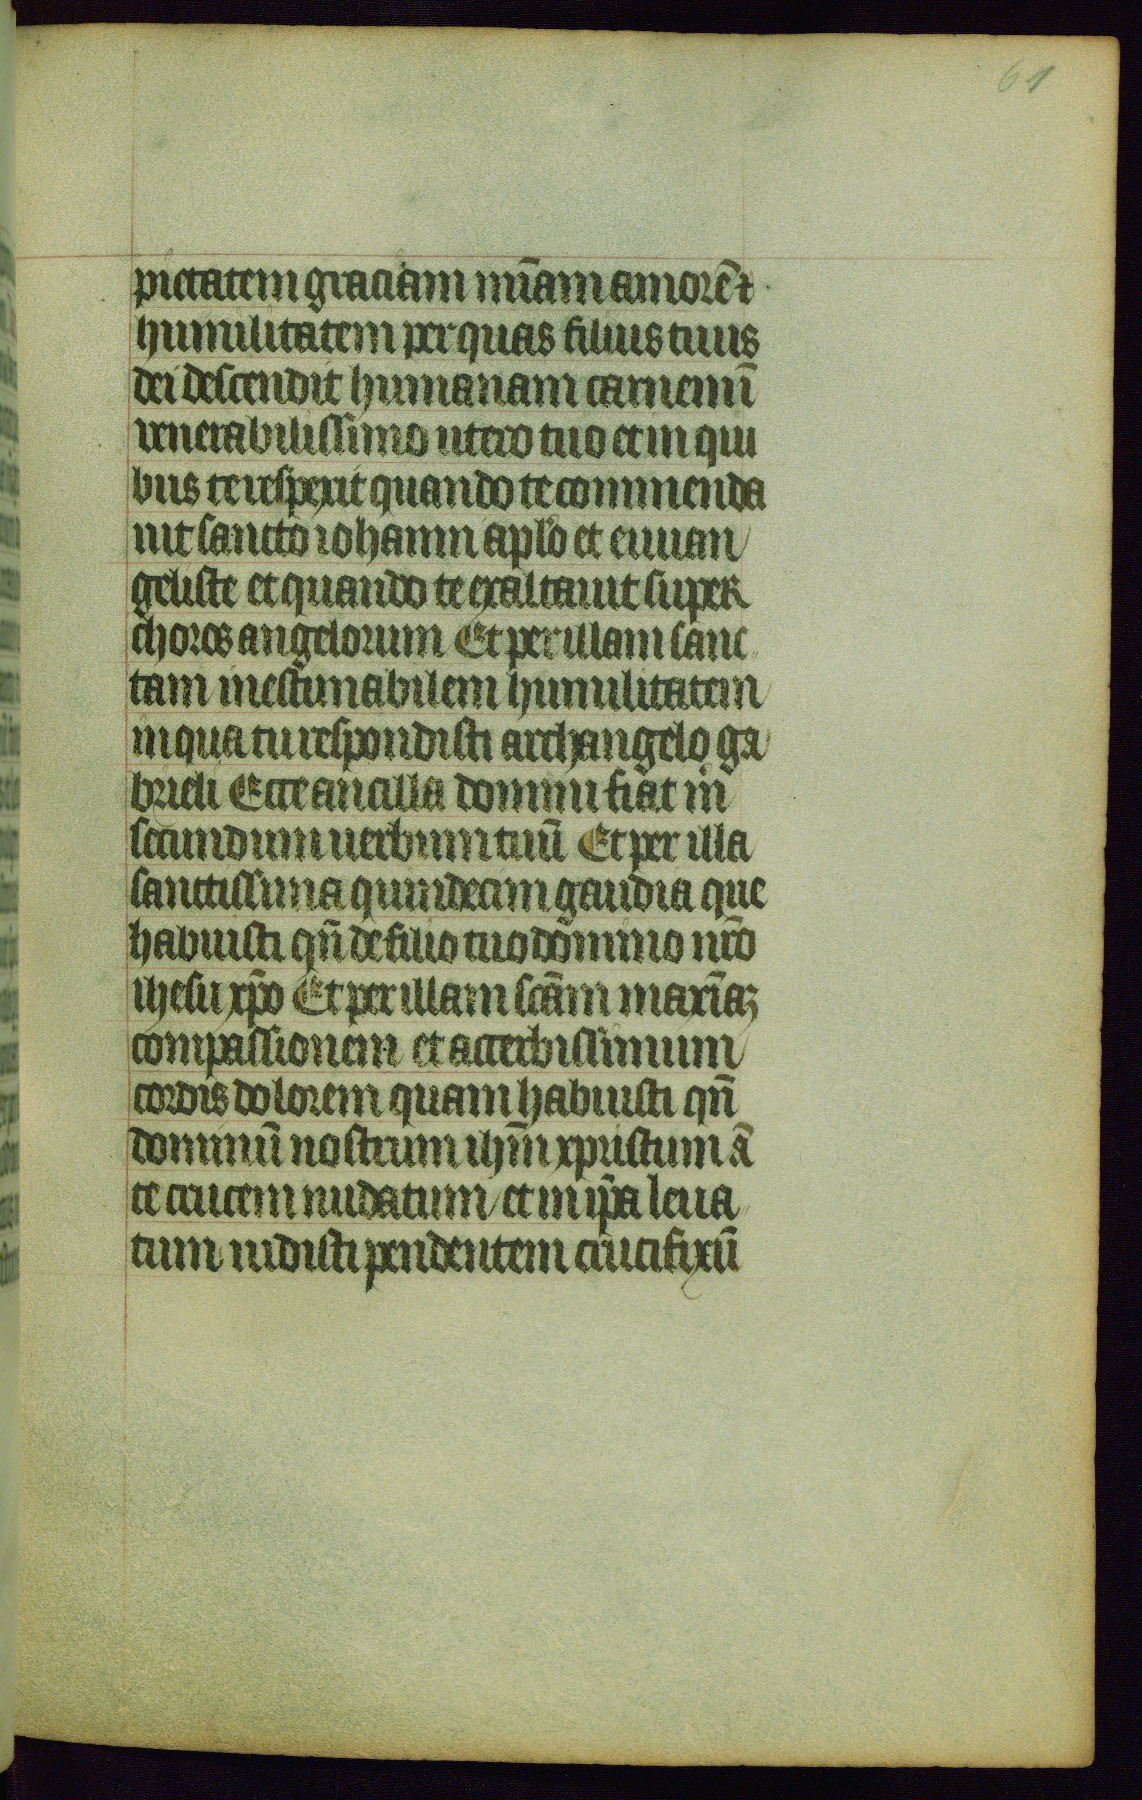 61
pietatem graciam mīam amorē ⁊
humilitatem per quas filius tuus
dei descendit humanam carnem ī
venerabilissimo utero tuo et in qui
bus te respexit quando te commenda
uit sancto iohanni aplo et euuan
geliste et quando te exaltauit super
choros angelorum Et per illam sanc
tam inestimabilem humilitatem
in qua tu respondisti archangelo ga
brieli Ecce ancilla domini fiat m̄
secundum uerbum tuū Et per illa
sanctissima quindecim gaudia que
habuisti qn̄ de filio tuo domino nr̄o
ihesu xp̄o Et per illam scām maxīaꝫ
compassionem et acerbissimum
cordis dolorem quam habuisti qn̄
dominū nostrum ihm̄ xpristum ā
te crucem nudatum et in ip̄a leua
tum uidisti pendentem crucifixū